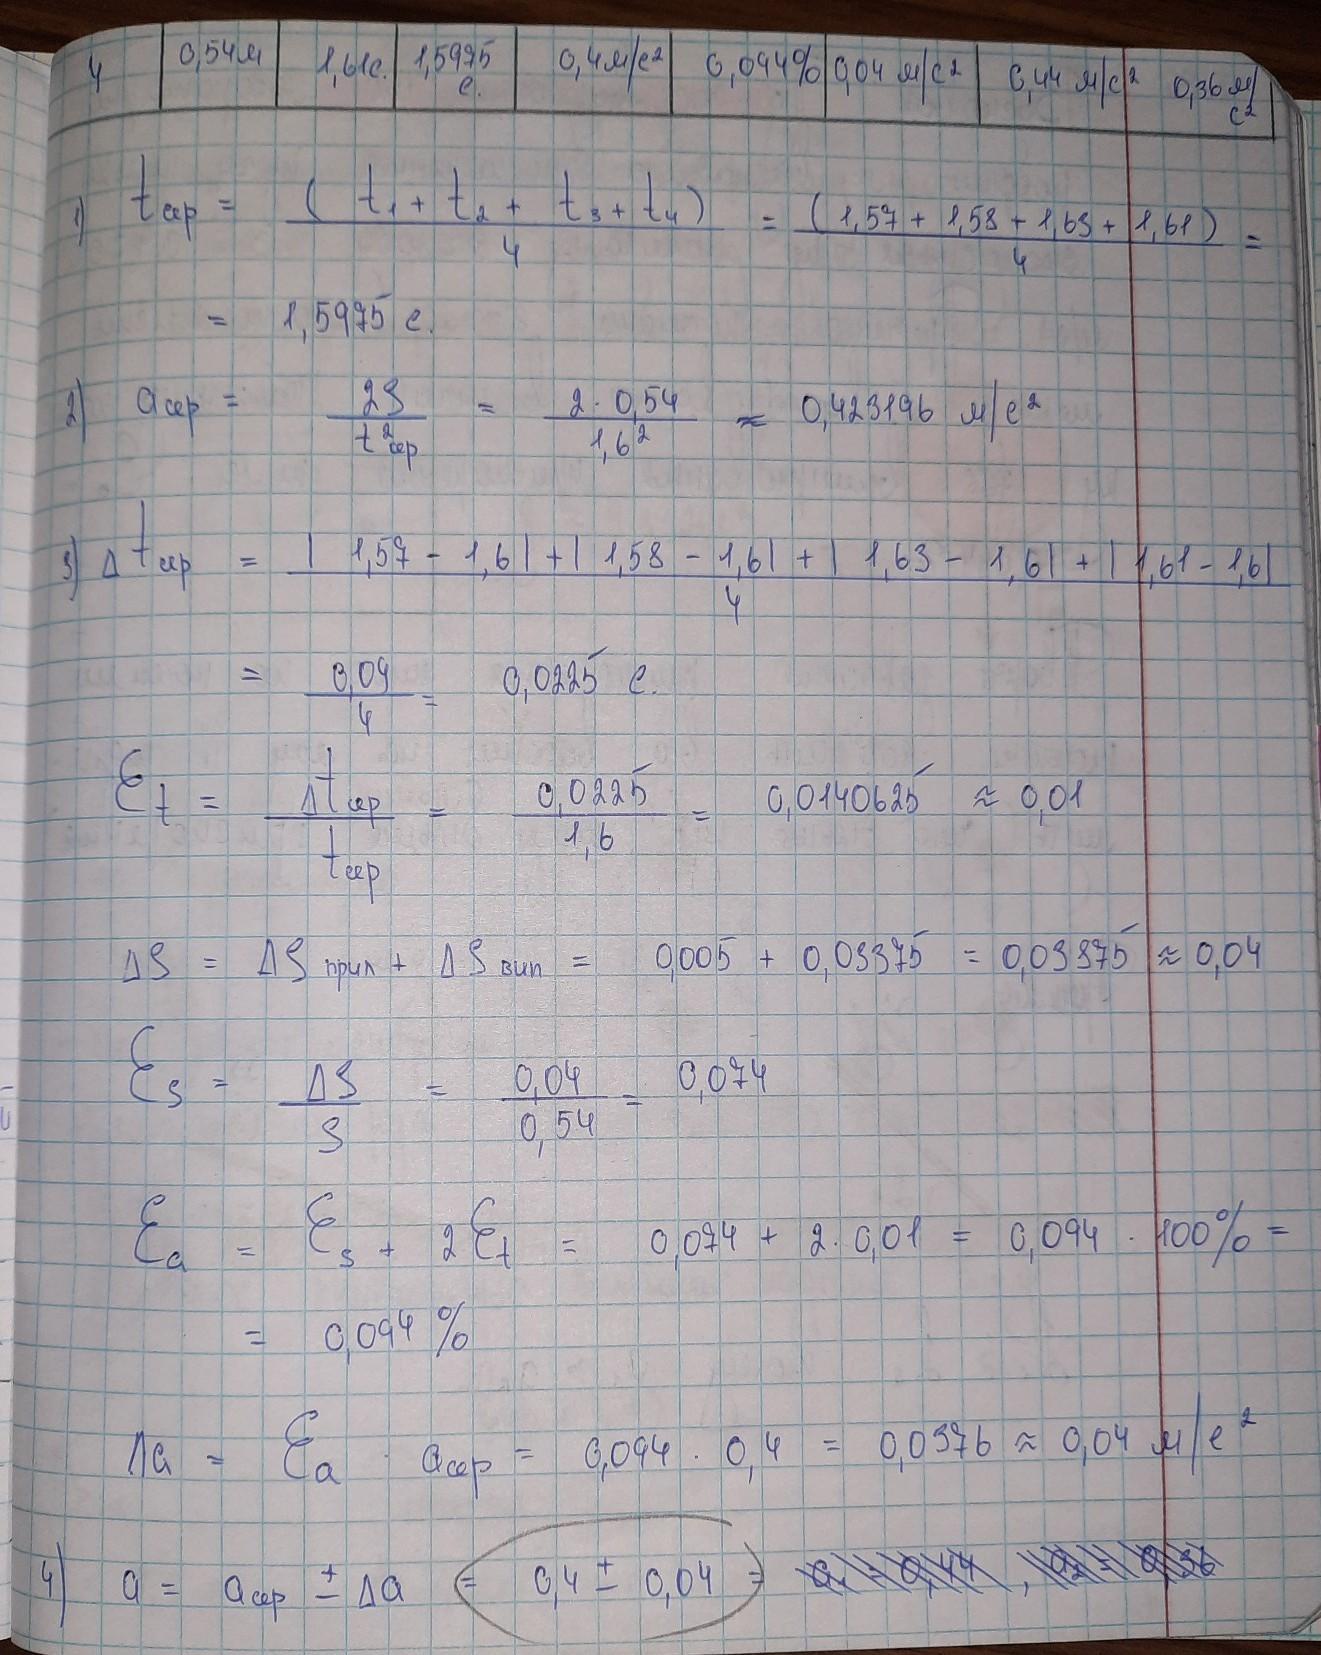 4 0,54м 1,61с. 1,5975 с. 0,4м/с² 0,094% 0,04 м/с² 0,44 м/с² 0,36 м/с²
1) tсер = (t₁ + t₂ + t₃ + t₄) / 4 = (1,57 + 1,58 + 1,63 + 1,61) / 4 =
= 1,5975 с.
2) aсер = 2S / t²сер = 2 · 0,54 / 1,6² ≈ 0,423196 м/с²
3) Δtсер = |1,57 - 1,6| + |1,58 - 1,6| + |1,63 - 1,6| + |1,61 - 1,6| / 4
= 0,09 / 4 = 0,0225 с.
Ɛt = Δtсер / tсер = 0,0225 / 1,6 = 0,0140625 ≈ 0,01
ΔS = ΔSприл + ΔSвип = 0,005 + 0,03375 = 0,03375 ≈ 0,04
Ɛs = ΔS / S = 0,04 / 0,54 = 0,074
Ɛa = Ɛs + 2Ɛt = 0,074 + 2 · 0,01 = 0,094 · 100% =
= 0,094 %
Δa = Ɛa · aсер = 0,094 · 0,4 = 0,0376 ≈ 0,04 м/с²
4) a = aсер ± Δa = 0,4 ± 0,04 =